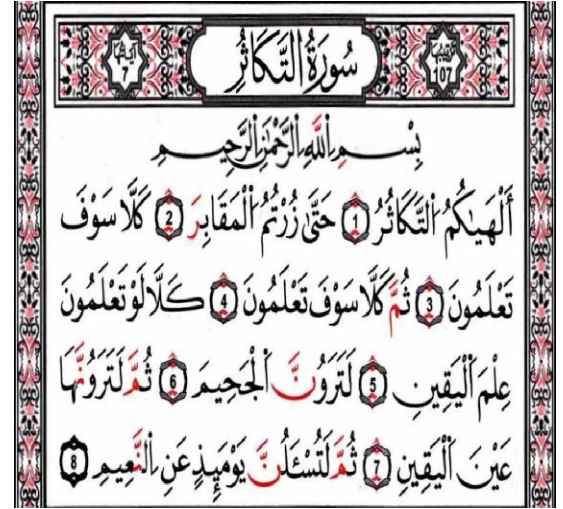 آياتها 7 سُورَةُ التَّكَاثُرِ ترتيبها 107
بِسْمِ اِللَّهِ اِلرَّحْمَٰنِ اِلرَّحِيمِ
أَلْهَيٰكُمُ اُلتَّكَاثُرُ 1 حَتَّىٰ زُرْتُمُ اُلْمَقَابِرَ 2 كَلَّا سَوْفَ
تَعْلَمُونَ 3 ثُمَّ كَلَّا سَوْفَ تَعْلَمُونَ 4 كَلَّا لَوْ تَعْلَمُونَ
عِلْمَ اَلْيَقِينِ 5 لَتَرَوُنَّ اَلْجَحِيمَ 6 ثُمَّ لَتَرَوُنَّهَا
عَيْنَ اَلْيَقِينِ 7 ثُمَّ لَتُسْـَٔلُنَّ يَوْمَئِذٍ عَنِ اِلنَّعِيمِ 8